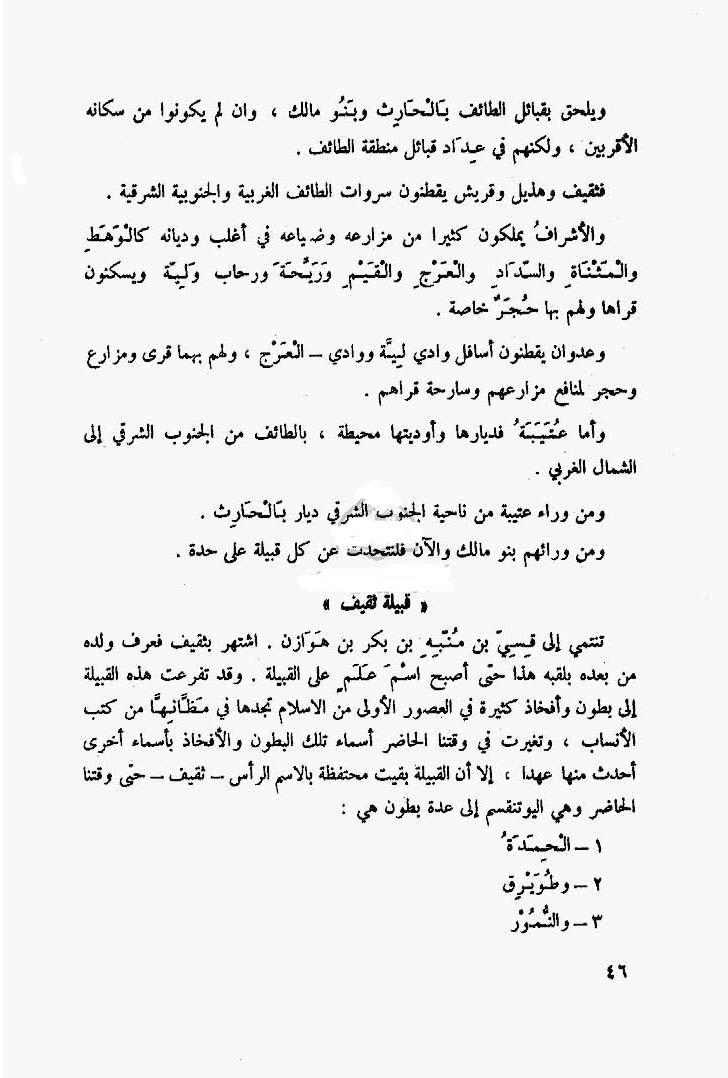 ويلحق بقبائل الطائف بَالْحَارِث وبَنُو مالك ، وان لم يكونوا من سكانه
الأقربين ، ولكنهم في عِدَاد قبائل منطقة الطائف .
فثقيف وهذيل وقريش يقطنون سروات الطائف الغربية والجنوبية الشرقية .
والأشرافُ يملكون كثيرا من مزارعه وضياعه في أغلب وديانه كالْوَهَطِ
والْمَثْنَاةِ والسّدَادِ والْعَرْجِ والْقَيْمِ وَرَيْحَةَ ورحاب وَلِيّة ويسكنون
قراها ولهم بها حُجَرٌ خاصة .
وعدوان يقطنون أسافل وادي لِيَّة ووادي – الْعَرْج ، ولهم بهما قرى ومزارع
وحجر لمنافع مزارعهم وسارحة قراهم .
وأما عُتَيْبَةُ فديارها وأوديتها محيطة ، بالطائف من الجنوب الشرقي إلى
الشمال الغربي .
ومن وراء عتيبة من ناحية الجنوب الشرقي ديار بَالْحَارِث .
ومن ورائهم بنو مالك والآن فلنتحدث عن كل قبيلة على حدة .
« قبيلة ثقيف »
تنتمي إلى قِسِيّ بن مُنَبِّهِ بن بكر بن هَوَازن . اشتهر بثقيف فعرف ولده
من بعده بلقبه هذا حتى أصبح اسْمَ عَلَمٍ على القبيلة . وقد تفرعت هذه القبيلة
إلى بطون وأفخاذ كثيرة في العصور الأولى من الاسلام تجدها في مَظَانِهَا من كتب
الأنساب ، وتغيرت في وقتنا الحاضر أسماء تلك البطون والأفخاذ بأسماء أخرى
أحدث منها عهدا ، إلا أن القبيلة بقيت محتفظة بالاسم الرأس – ثقيف – حتى وقتنا
الحاضر وهي اليوتنقسم إلى عدة بطون هي :
١ – الْحِمَدَةُ
٢ – وطُوَيْرِق
٣ – والنُّمُوْر
٤٦